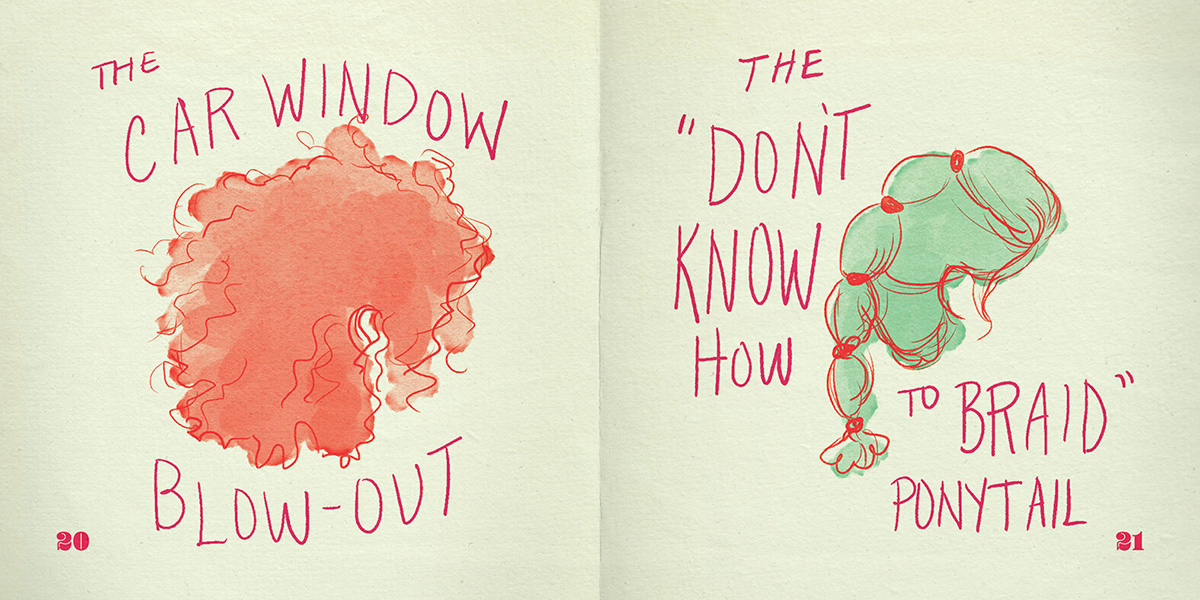 THE
CAR WINDOW
BLOW-OUT
20
THE
"DON'T
KNOW
HOW
TO BRAID"
PONYTAIL
21